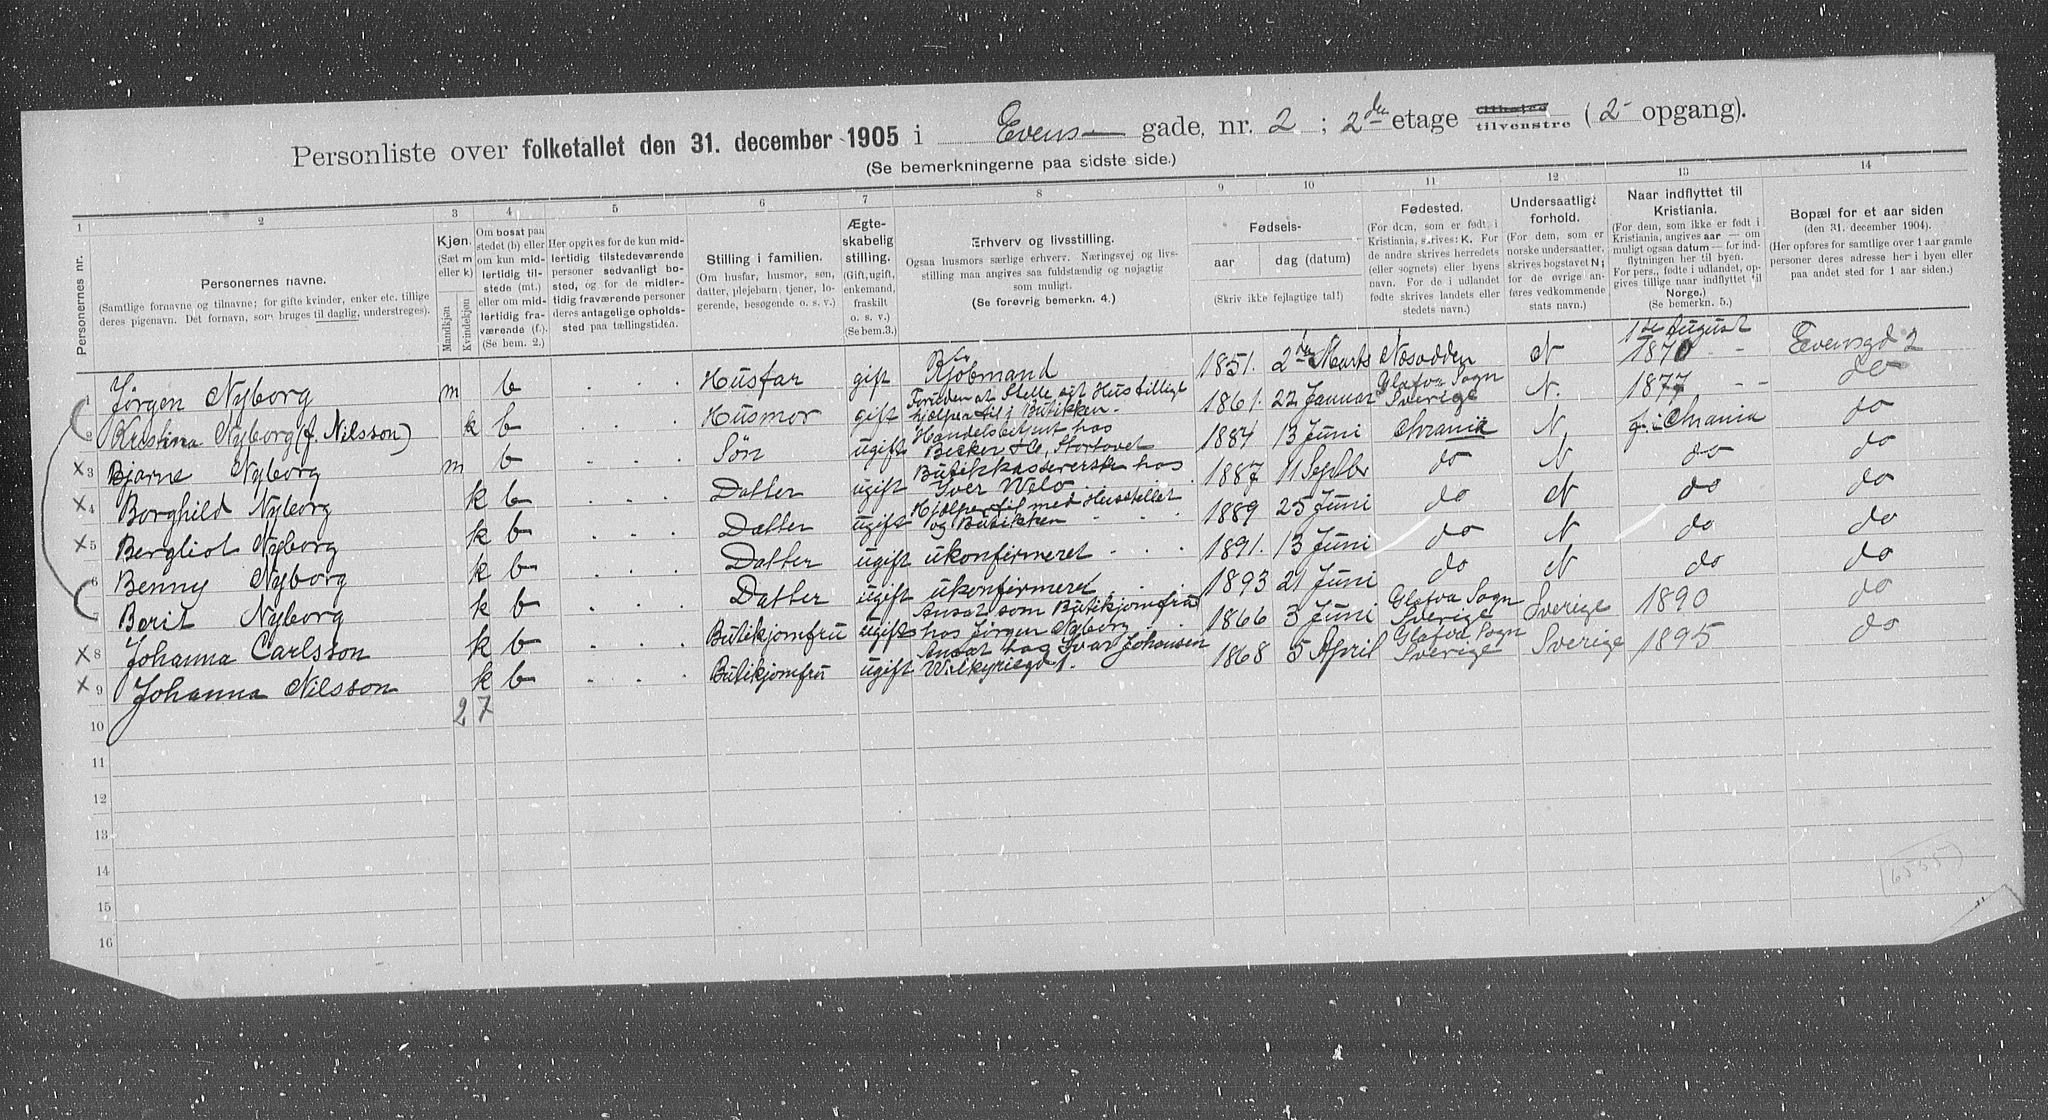 Personliste over folketallet den 31. december 1905 i Evens— gade, nr. 2 ; 2den etage tilhøire tilvenstre (2- opgang).
(Se bemerkningerne paa sidste side.)
1 2 3 4 5 6 7 8 9 10 11 12 13 14
Personernes nr.
Personernes navne.
(Samtlige fornavne og tilnavne; for gifte kvinder, enker etc. tillige
deres pigenavn. Det fornavn, som bruges til daglig, understreges).
Kjøn.
(Sæt m
eller k)
Mandkjøn
Kvindekjøn
Om bosat paa
stedet (b) eller
om kun mid-
lertidig til-
stede (mt.)
eller om mid-
lertidig fra-
værende (f.)
(Se bem. 2.)
Her opgives for de kun mid-
lertidig tilstedeværende
personer sedvanligt bo-
sted, og for de midler-
tidig fraværende personer
deres antagelige opholds-
sted paa tællingstiden.
Stilling i familien.
(Om husfar, husmor, søn,
datter, plejebarn, tjener, lo-
gerende, besøgende o. s. v.)
Ægte-
skabelig
stilling.
(Gift, ugift,
enkemand,
fraskilt
o. s. v.)
(Se bem.3.)
Erhverv og livsstilling.
Ogsaa husmors særlige erhverv. Næringsvej og livs-
stilling maa angives saa fuldstændig og nøjagtig
som muligt.
(Se forøvrig bemerkn. 4.)
Fødsels-
aar dag (datum)
(Skriv ikke fejlagtige tal!)
Fødested.
(For dem, som er født i
Kristiania, skrives: K. For
de andre skrives herredets
(eller sognets) eller byens
navn. For de i udlandet
fødte skrives landets eller
stedets navn.)
Undersaatligt
forhold.
(For dem, som er
norske undersaatter,
skrives bogstavet N;
for de øvrige an-
føres vedkommende
stats navn.)
Naar indflyttet til
Kristiania.
(For dem, som ikke er født i
Kristiania, angives aar — om
muligt ogsaa datum — for ind-
flytningen her til byen.
For pers., fødte i udlandet, op-
gives tillige naar indflyttet til
Norge.)
(Se bemerkn. 5.)
Bopæl for et aar siden
(den 31. december 1904).
(Her opføres for samtlige over 1 aar gamle
personer deres adresse her i byen eller
paa andet sted for 1 aar siden.)
1 Jørgen Nyborg m b . . . Husfar gift Kjøbmand 1851. 2den Marts Næsodden N 1ste August 1870 - - Evensgd 2
2 Kristina Nyborg (f. Nilsson) k b . . . Husmor gift Foruden at Stelle sit Hus tilligt hjælper til i Butikken. 1861. 22 Januar Glafva Sogn Sverige N. 1877 - - do
x 3 Bjarne Nyborg m b . . . Søn ugift Handelsbetjent hos Becker & Co, Stortovet 1884 13 Juni Chrania N. f. i Chrania do
x 4 Borghild Nyborg k b . . . Datter ugift Butikkassererske hos Iver Welo. 1887 11 Septbr do N do do
x 5 Bergliot Nyborg k b . . . Datter ugift Hjælper til med Husstellet og Butikken 1889 25 Juni do N do do
6 Benny Nyborg k b . . . Datter ugift ukonfirmeret . . . 1891. 13 Juni do N do do
7 Berit Nyborg k b . . . Datter ugift ukonfirmeret . . . 1893 21 Juni do N do do
x 8 Johanna Carlsson k b . . . Butikjomfru ugift Ansat som Butikjomfru hos Jørgen Nyborg 1866 3 Juni Glafva Sogn Sverige Sverige 1890 do
x 9 Johanna Nilsson k b . . . Butikjomfru ugift Ansat hos Ivar Johansen Walkyriegd 1. 1868 5 April Glafva Sogn Sverige Sverige 1895 do
10 2 7
11
12
13
14
15
16